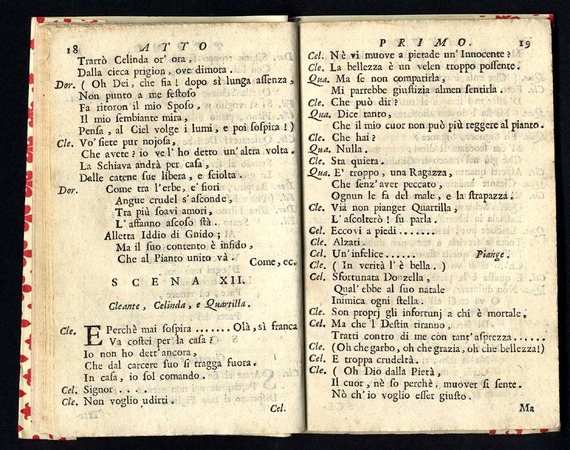 18 ATTO
Trarrò Celinda or' ora,
Dalla cieca prigion, ove dimora.
Dor. ( Oh Dei, che fia! dopo sì lunga assenza,
Non punto a me festoso
Fa ritoron il mio Sposo,
Il mio sembiante mira,
Pensa, al Ciel volge i lumi, e poi sospira!)
Cle. Vo' siete pur nojosa,
Che avete? io ve l'ho detto un'altra volta.
La Schiava andrà per casa,
Dalle catene sue libera, e sciolta.
Dor. Come tra l'erbe, e' fiori
Angue crudel s'asconde,
Tra più soavi amori,
L'affanno ascoso stà.
Alletta Iddio di Gnido;
Ma il suo contento è infido,
Che al Pianto unito và.
Come, ec.
SCENA XII.
Cleante, Celinda, e Quartilla.
Cle. E Perchè mai sospira ....... Olà, sì franca
Va costei per la casa?
Io non ho dett'ancora,
Che dal carcere suo si tragga fuora.
In casa, io sol comando.
Cel. Signor ....
Cle. Non voglio udirti.
Cel.
PRIMO. 19
Cel. N'è vi muove a pietade un'Innocente?
Cle. La bellezza è un velen troppo possente.
Qua. Ma se non compatirla,
Mi parrebbe giustizia almen sentirla.
Cle. Che può dir?
Qua. Dice tanto,
Che il mio cuor non può più reggere al pianto.
Cle. Che hai?
Qua. Nulla.
Cle. Sta quieta.
Qua. E' troppo, una Ragazza,
Che senz'aver peccato,
Ognun le fa del male, e la strapazza.
Cle. Via non pianger Quartilla,
L'ascolterò! su parla.
Cel. Eccovi a piedi .......
Cle. Alzati.
Cel. Un'infelice ...... Piange.
Cle. ( In verità l'è bella. )
Cel. Sfortunata Donzella,
Qual'ebbe al suo natale
Inimica ogni stella.
Cle. Son proprj gli infortunj a chi è mortale.
Cel. Ma che l Destin tiranno,
Tratti contro di me con tant'asprezza ......
Cle. (Oh che garbo, oh che grazia, oh che bellezza!)
Cel. E troppa crudeltà.
Cle. ( Oh Dio dalla Pietà,
Il cuor, nè so perchè, muover si sente.
Nò ch'io voglio esser giusto.
Ma